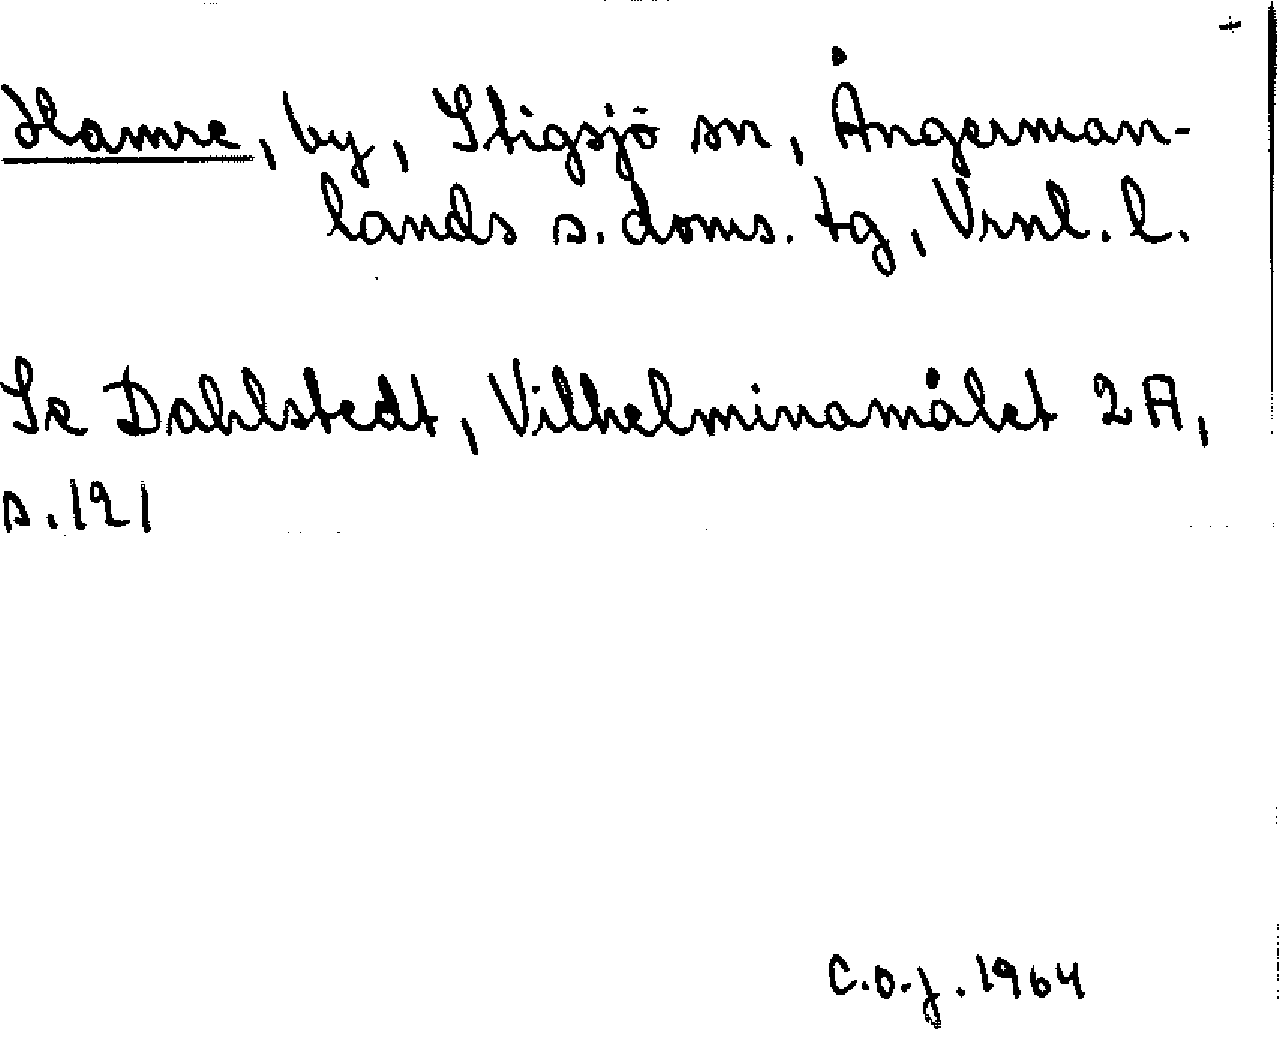 +
Hamre, by, Stigsjö sn, Ångerman-
lands s. doms. tg, Vrnl. l.
Se Dahlstedt, Vilhelminamålet 2A,
s. 121
C.O.J. 1964